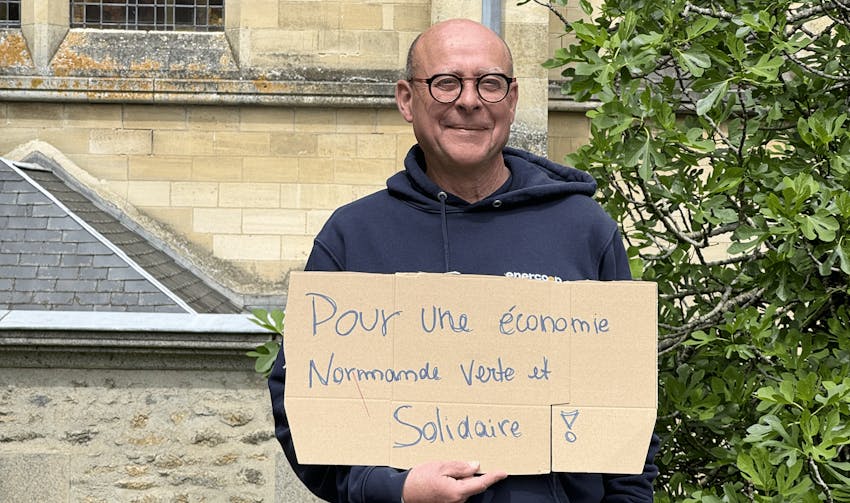 enercoop
Pour une économie
Normande verte et
Solidaire !